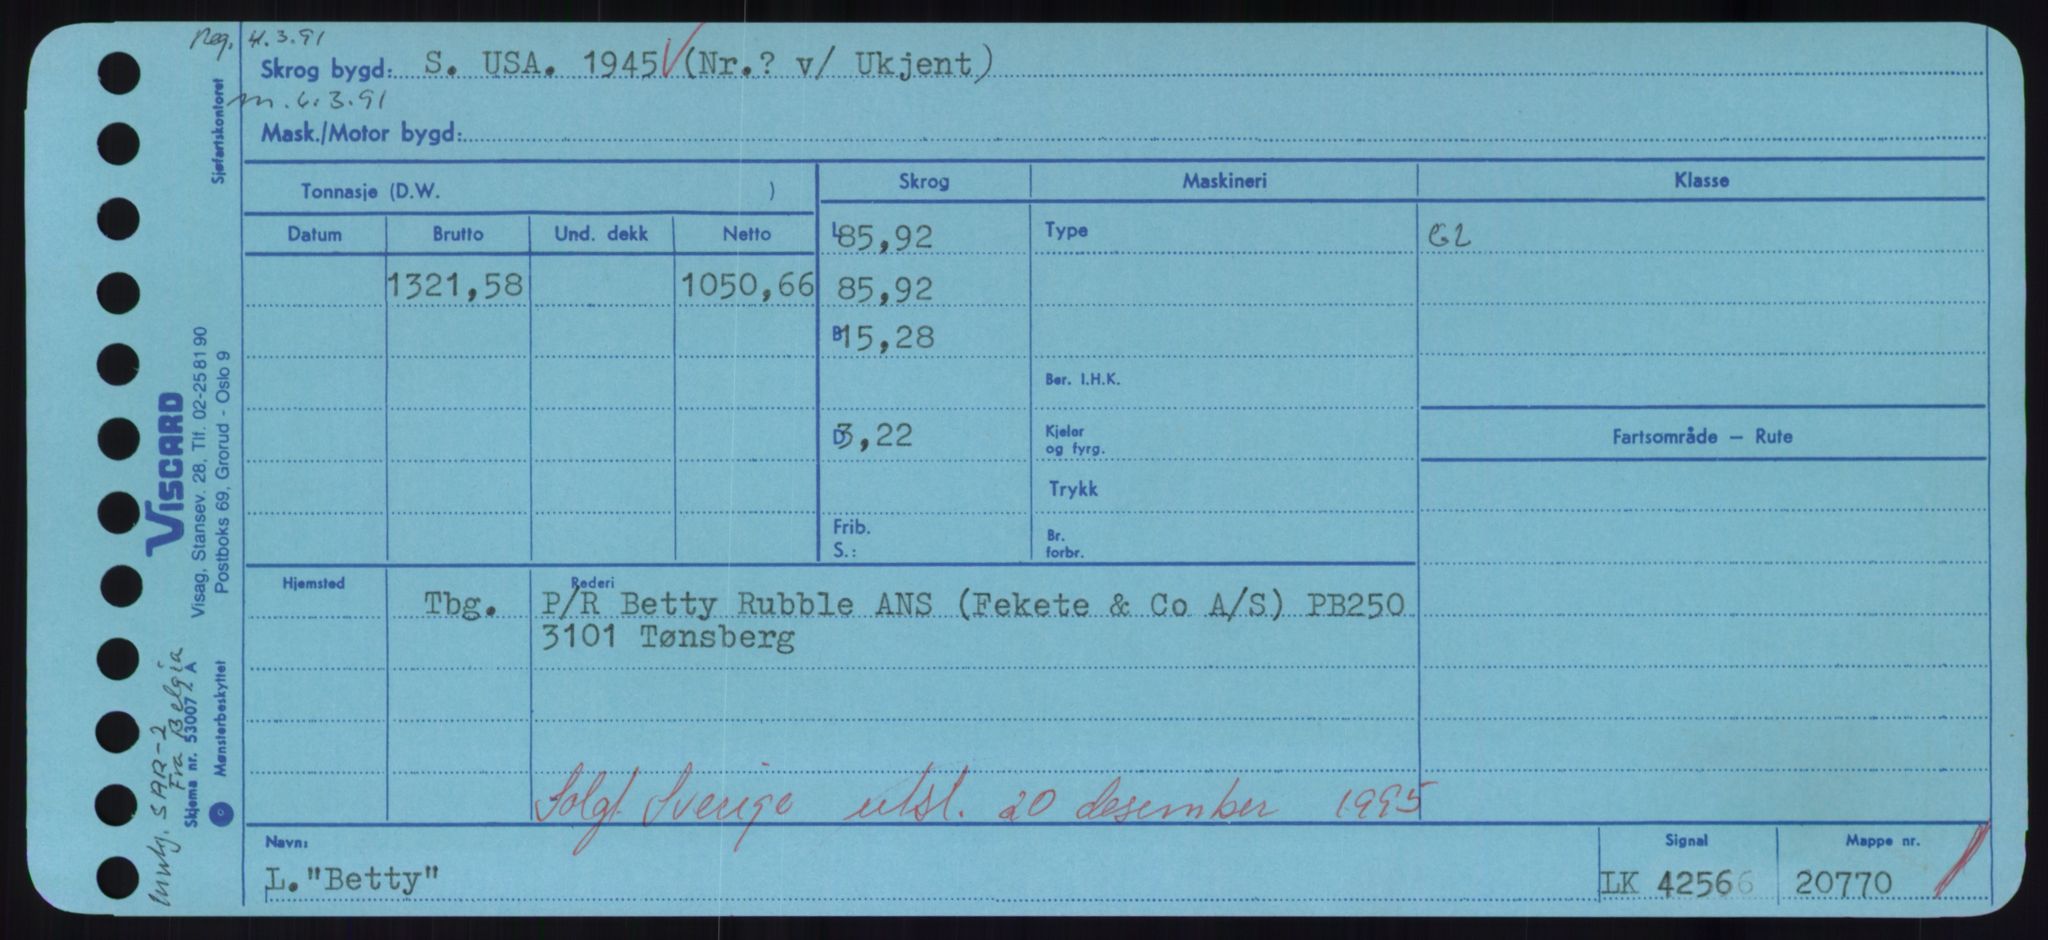 Reg. 4.3.91
Skrog bygd: S. USA. 1945 (Nr.? v/ Ukjent)
m. 6.3.91
Mask./Motor bygd:
Sjøfartskontoret
Tonnasje (D.W. )
Skrog
Maskineri
Klasse
Datum
Brutto
Und. dekk
Netto
L 85,92
Type
1321,58
1050,66
85,92
B 15,28
Ber. I.H.K.
D 3,22
Kjeler
og fyrg.
Fartsområde — Rute
Trykk
Frib.
S.:
Br.
forbr.
VISCARD
Visag, Stansev. 28, Tlf. 02-25 81 90
Postboks 69, Grorud - Oslo 9
Hjemsted
Rederi
Tbg. P/R Betty Rubble ANS (Fekete & Co A/S) PB250
3101 Tønsberg
Skjema nr. 53007 A
Mønsterbeskyttet
SAR-2
Fra Belgia
Solgt Sverige utsl. 20 desember 1995
Navn:
L."Betty"
Signal
LK 42566
Mappe nr.
20770